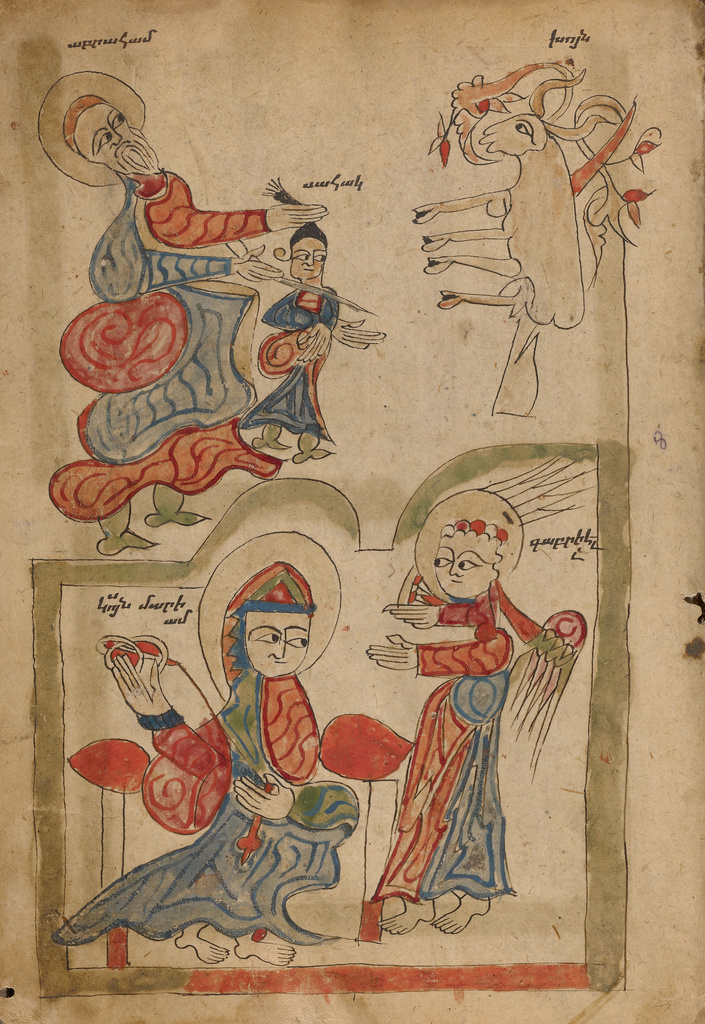 աբրահամ
խոյն
սահակ
գաբրիէլ
կոյսն մարի
ամ